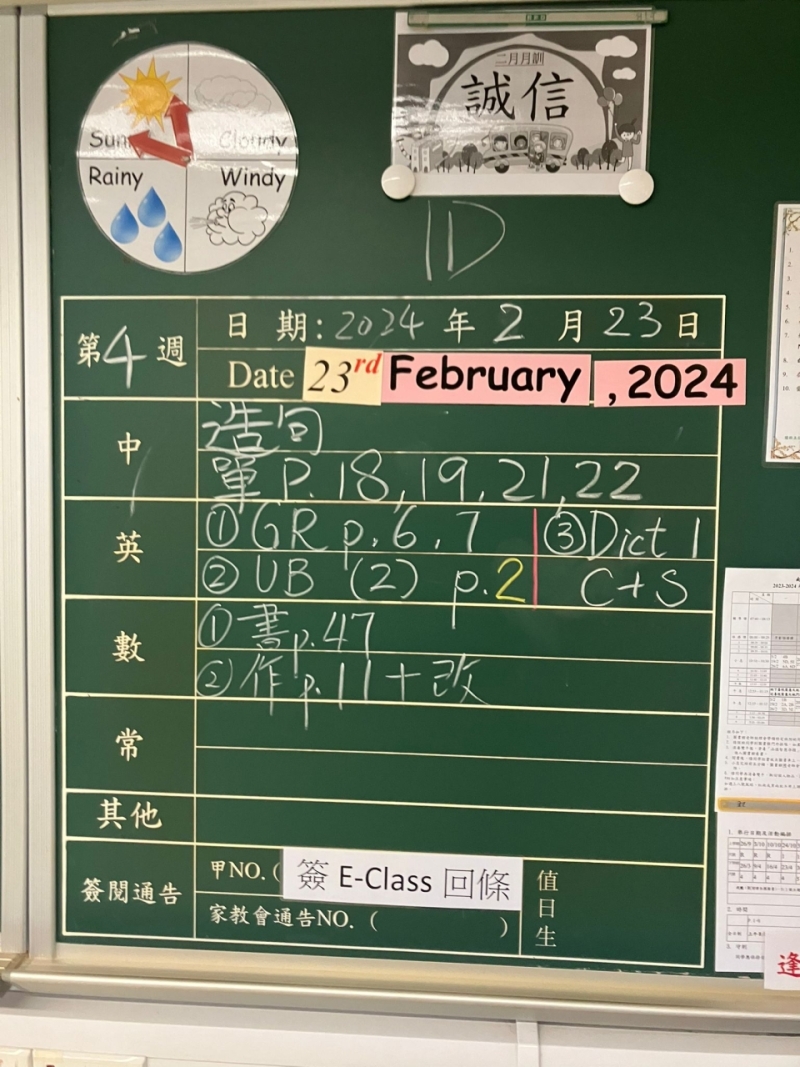 二月月訓
誠信
Sunny
Cloudy
Rainy
Windy
1D
第4週
日 期: 2024 年 2 月 23 日
Date 23rd February , 2024
中
造句
單 P. 18, 19, 21, 22
英
① GR p. 6, 7
② UB (2) p. 2
③ Dict 1
C+S
數
① 書p.47
② 作p.11+改
常
其他
簽閱通告
甲NO.(
簽 E-Class 回條
家教會通告NO. ( )
值日生
逢